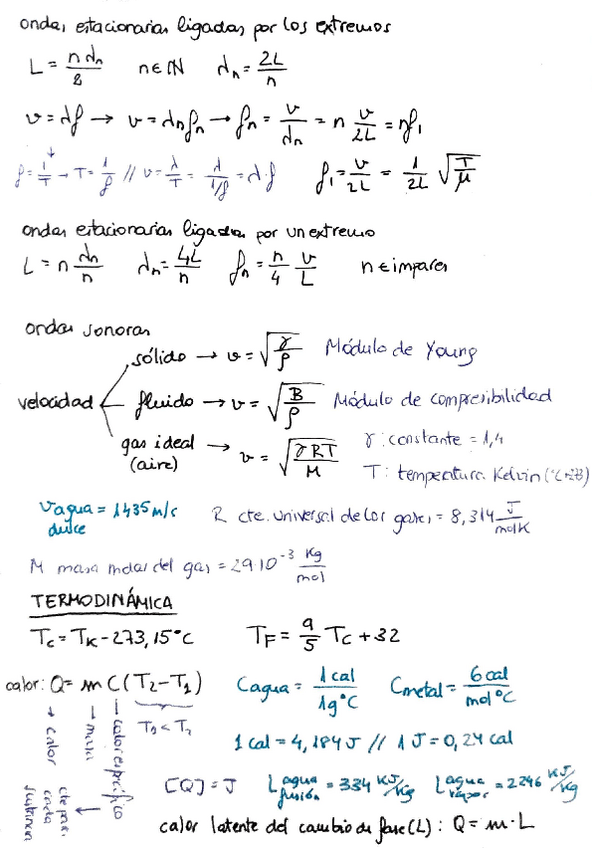 ondas estacionarias ligadas por los extremos
L = n λn / 2   n ∈ ℕ   λn = 2L / n
v = λf → v = λn fn → fn = v / λn = n v / 2L = n f₁
f = 1/T → T = 1/f // v = λ/T = λ/(1/f) = λ·f   f₁ = v / 2L = 1 / 2L √(T/μ)
ondas estacionarias ligadas por un extremo
L = n λn / n   λn = 4L / n   fn = n / 4 v / L   n ∈ impares
ondas sonoras
velocidad
sólido → v = √(Y/ρ)   Módulo de Young
fluido → v = √(B/ρ)   Módulo de compresibilidad
gas ideal (aire) → v = √(γRT/M)   γ: constante = 1,4
T: temperatura Kelvin (°C+273)
Vagua dulce = 1435 m/s   R cte. universal de los gases = 8,314 J/molK
M masa molar del gas = 29·10⁻³ Kg/mol
TERMODINÁMICA
Tc = TK - 273,15°C   TF = 9/5 Tc + 32
calor: Q = m C (T₂ - T₁)   Cagua = 1 cal / 1g°C   Cmetal = 6 cal / mol°C
T₁ < T₂
→ calor
→ masa
→ calor específico
→ cte para cada sustancia
1 cal = 4,184 J // 1 J = 0,24 cal
[Q] = J   L agua fusión = 334 KJ/Kg   L agua vapor = 2246 KJ/Kg
calor latente del cambio de fase (L): Q = m·L